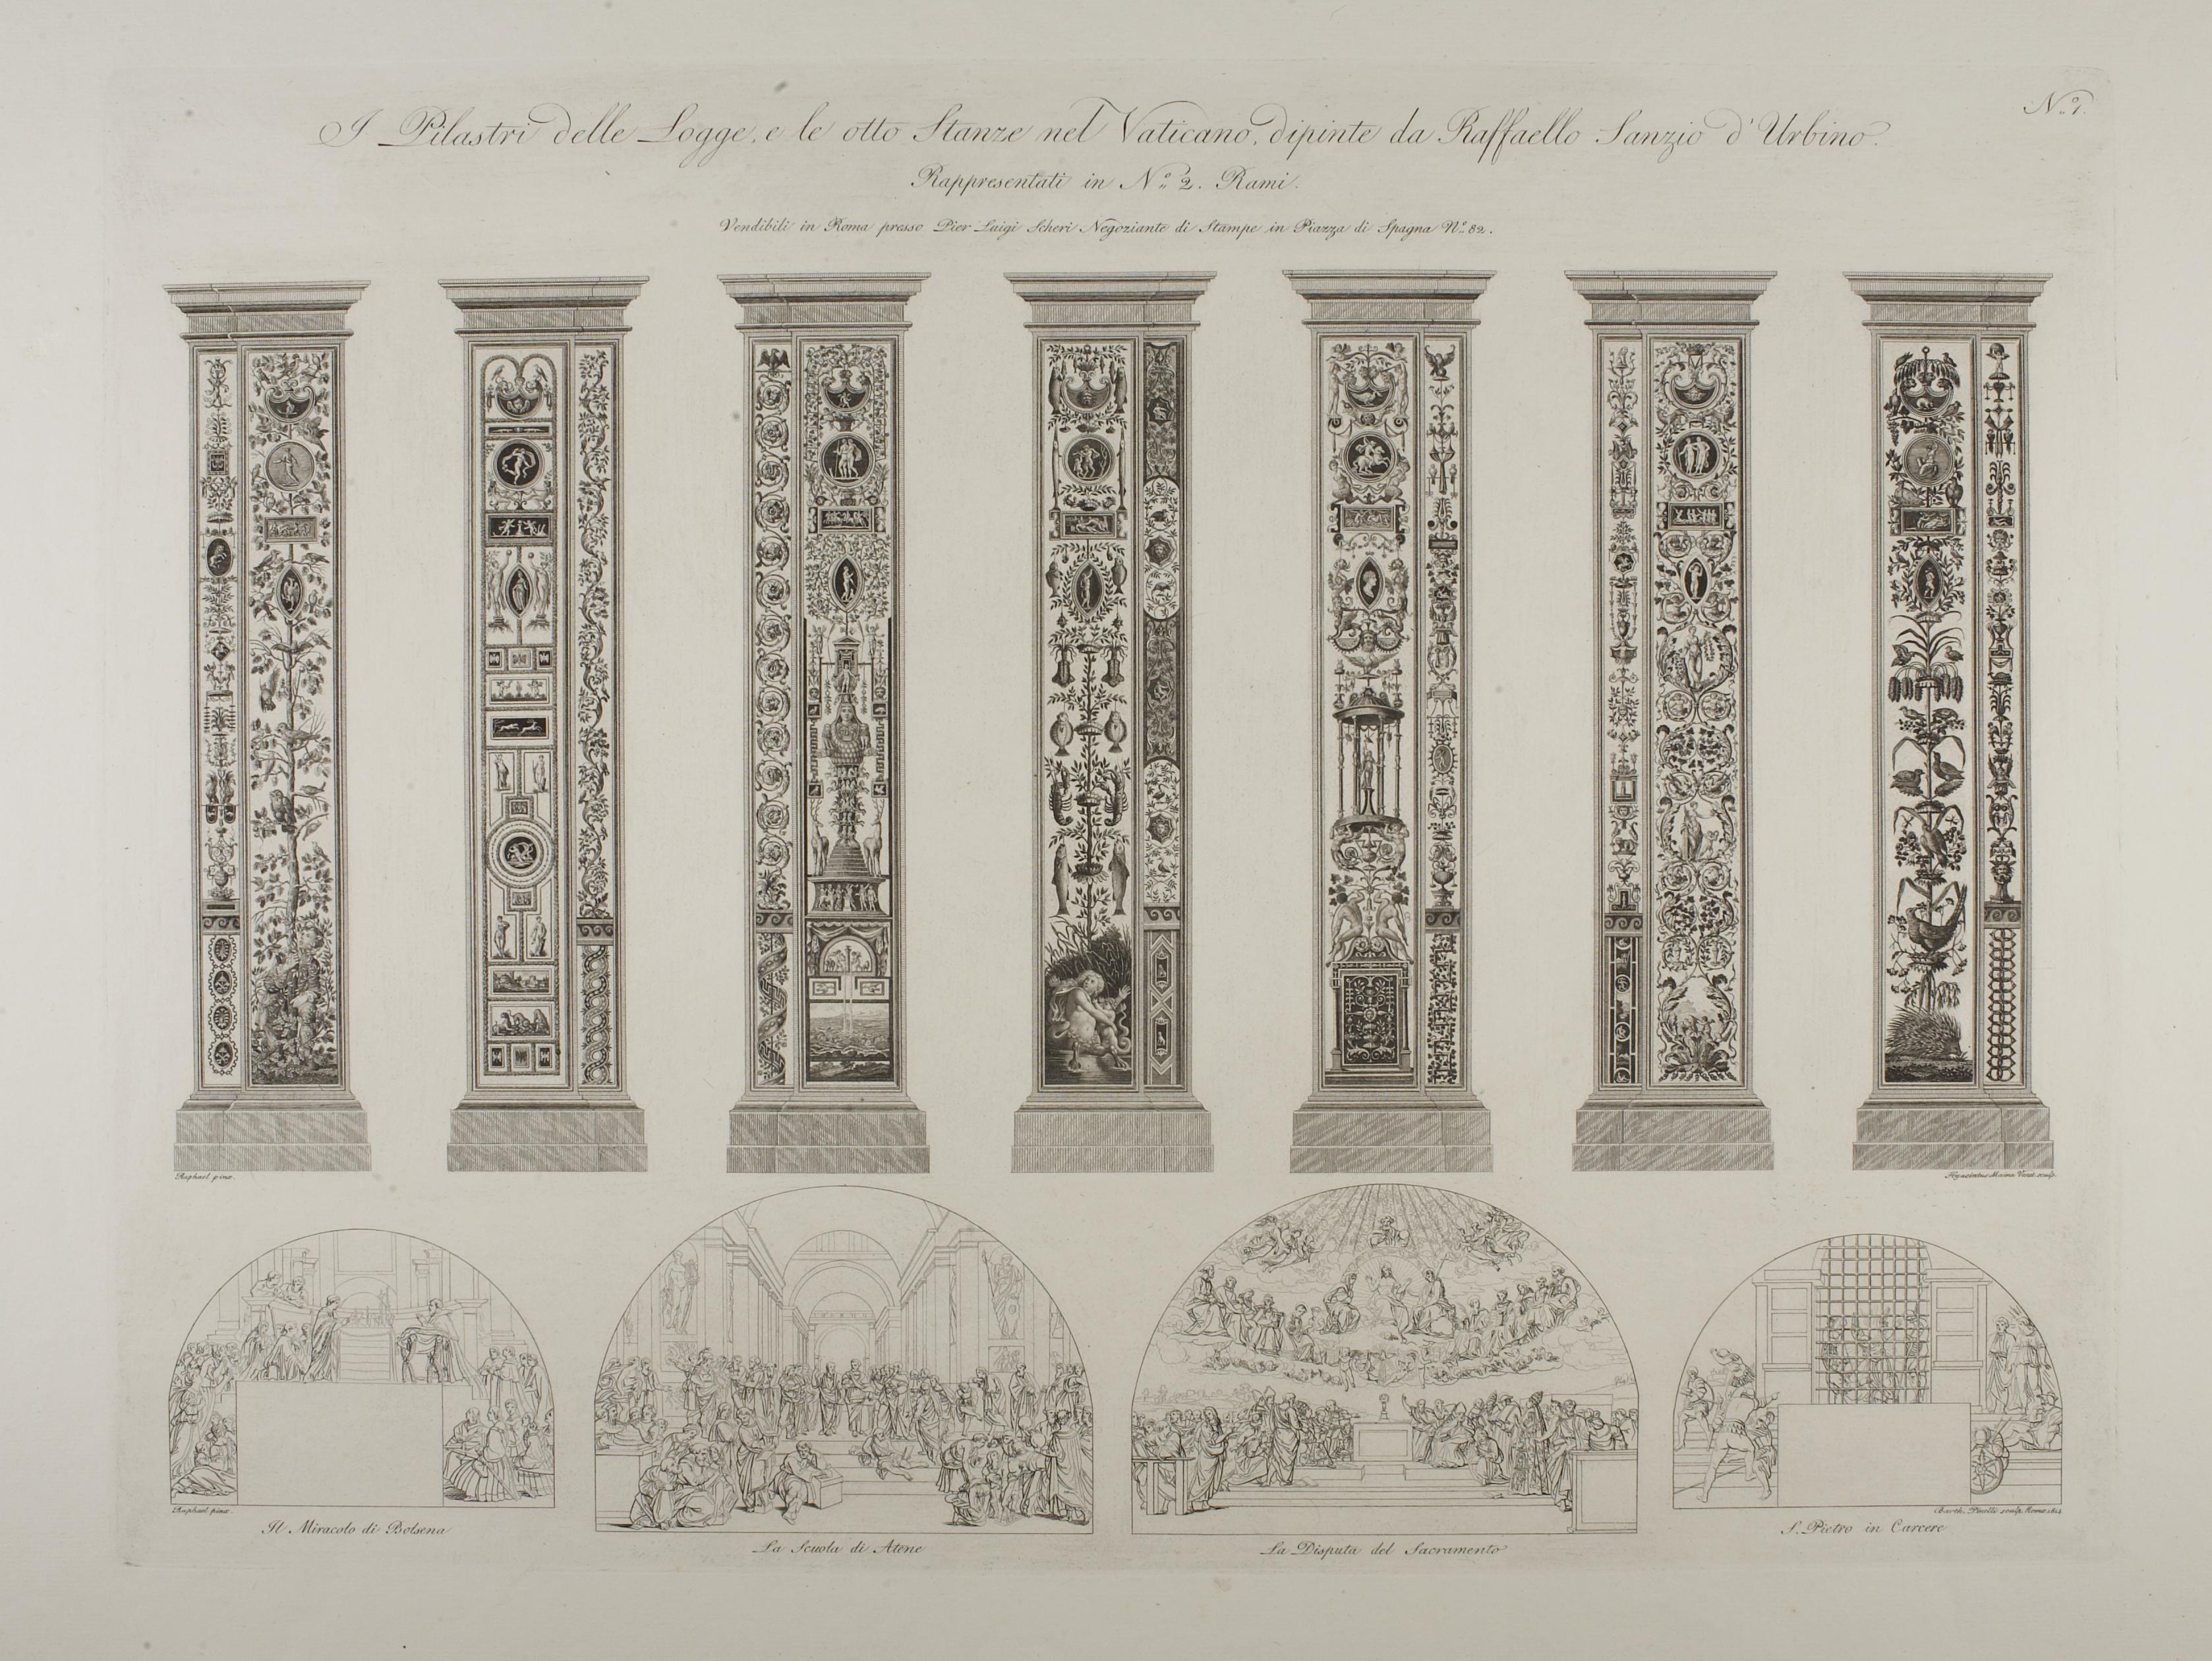 N.º 1.
I Pilastri delle Logge, e le otto Stanze nel Vaticano, dipinte da Raffaello Sanzio d'Urbino.
Rappresentati in N.º 2. Rami.
Vendibili in Roma presso Pier Luigi Scheri Negoziante di Stampe in Piazza di Spagna N.º 82.
Raphael pinx.
Hyacintus Maina Venet. sculp.
Raphael pinx.
Barth. Pinelli sculp. Romæ
Il Miracolo di Bolsena
La Scuola di Atene
La Disputa del Sacramento
S. Pietro in Carcere